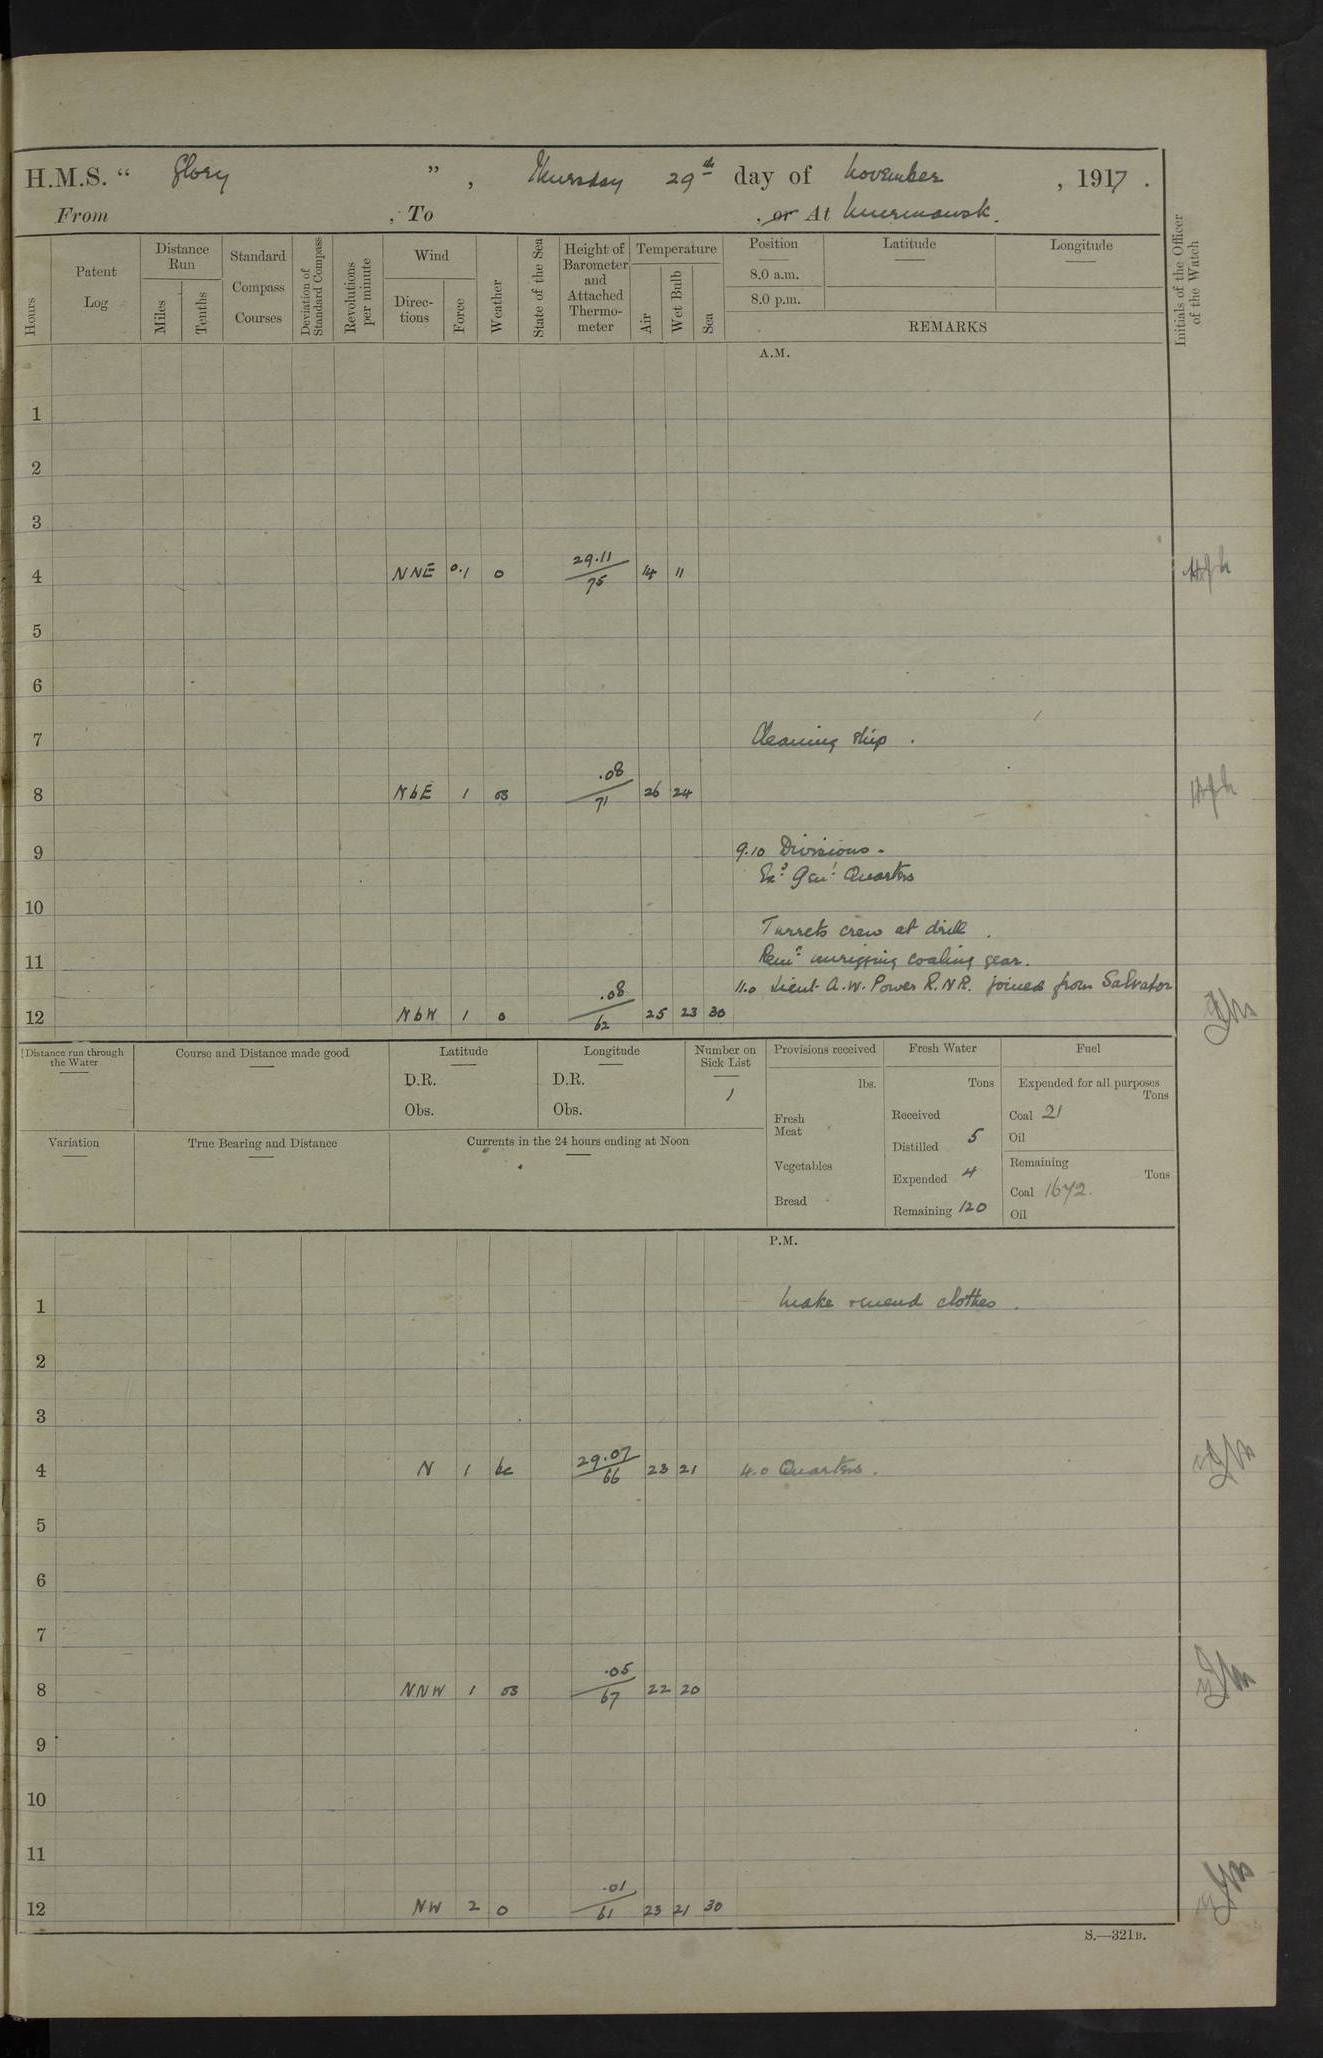 H.M.S. " Glory ", Thursday 29th day of November, 1917.
From , To , or At Murmansk.
Hours
Patent Log
Distance Run
Miles
Tenths
Standard Compass Courses
Deviation of Standard Compass
Revolutions per minute
Wind
Directions
Force
Weather
State of the Sea
Height of Barometer and Attached Thermometer
Temperature
Air
Wet Bulb
Sea
Position
8.0 a.m.
8.0 p.m.
Latitude
Longitude
REMARKS
Initials of the Officer of the Watch
A.M.
1
2
3
4 NNE 0.1 o 29.11/75 14 11
5
6
7 Cleaning ship.
8 NbE 1 os .08/71 26 24
9 9.10 Divisions.
Exd Genl Quarters
10
Turrets crew at drill.
11 Remr unrigging coaling gear.
11.0 Lieut A.W. Power R.N.R. joined from Salvator
12 NbW 1 o .08/62 25 23 30
Distance run through the Water
Course and Distance made good
Latitude
D.R.
Obs.
Longitude
D.R.
Obs.
Number on Sick List
1
Provisions received
lbs.
Fresh Meat
Vegetables
Bread
Fresh Water
Tons
Received
Distilled 5
Expended 4
Remaining 120
Fuel
Expended for all purposes
Tons
Coal 21
Oil
Remaining
Tons
Coal 1672.
Oil
Variation
True Bearing and Distance
Currents in the 24 hours ending at Noon
P.M.
1 Make + mend clothes.
2
3
4 N 1 bc 29.07/66 23 21 4.0 Quarters.
5
6
7
8 NNW 1 os .05/67 22 20
9
10
11
12 NW 2 o .01/61 23 21 30
S.—321B.